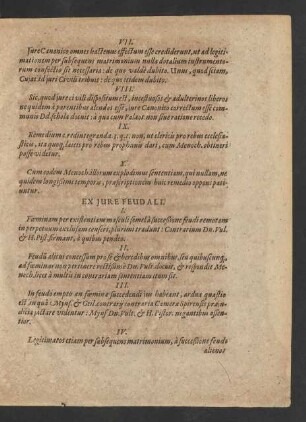 VII.
Jure Canonico omnes hactenus effectum esse crediderunt, ut ad legiti-
mationem per subsequens matrimonium nulla dotalium instrumento-
rum confectio sit necessaria: de quo valdè dubito. Unus, quod sciam,
Cujac. id juri Civili tribuit: de quo itidem dubito.
VIII.
Sic, quod jure civili dispositum est, incestuosos & adulterinos liberos
ne quidem à parentibus alendos esse, jure Canonico correctum esse com-
munis DD. schola docuit: à qua cum Palæot. non sine ratione recedo.
IX.
Remedium c. redintegranda. 3. q. 1. non, ut clericis pro rebus ecclesia-
sticis, ita quoq; laicis pro rebus prophanis dari, cum Menoch. obtineri
posse videtur.
X.
Cum eodem Menoch. illorum explodimus sententiam, qui nullam, ne
quidem longissimi temporis, præscriptionem huic remedio opponi pati-
untur.
EX JURE FEUDALI
I.
Fœminam per existentiam masculi semel à successione feudi remotam
in perpetuum exclusam censeri, plurimi tradunt: Contrarium Dn. Vul.
& H. Pist. firmant, à quibus pendeo.
II.
Feudũ alicui concessum pro se & heredibus omnibus, seu quibuscunq;
ad fœminas non pertinere rectissimè Dn. Vult. docuit, & respondit Me-
noch. licet à multis in contrariam sententiam itum sit.
III.
In feudo empto an fœminæ succedendi jus habeant, ardua quæstio
est in qua: Mynf. & Civil. contrarii in contraria Camera Spirensi præ-
judicia jactare videntur: Mynf. Dn. Vult. & H. Pistor. negantibus assen-
tior.
IV.
Legitimatos etiam per subsequens matrimonium, à successione feudo
alienos